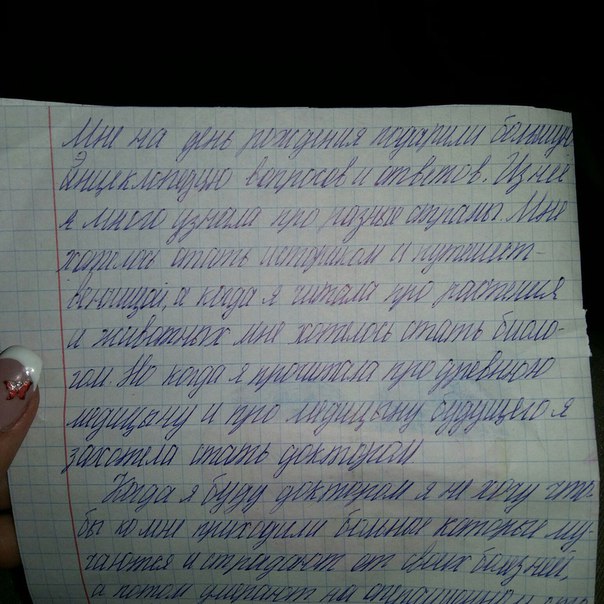 Мне на день рождения подарили большую
Энциклопедию вопросов и ответов. Из неё
я много узнала про разные страны. Мне
хотелось стать историком и путешест-
а когда я читала про растения
и животных мне хотелось стать биоло-
гом. Но когда я прочитала про древнюю
медицыну и про медицыну будущего я
захотела стать доктором.
Когда я буду доктором я не хочу что-
бы ко мне приходили больные которые му-
чаются и страдают от своих болезней,
а потом умирают на операционном